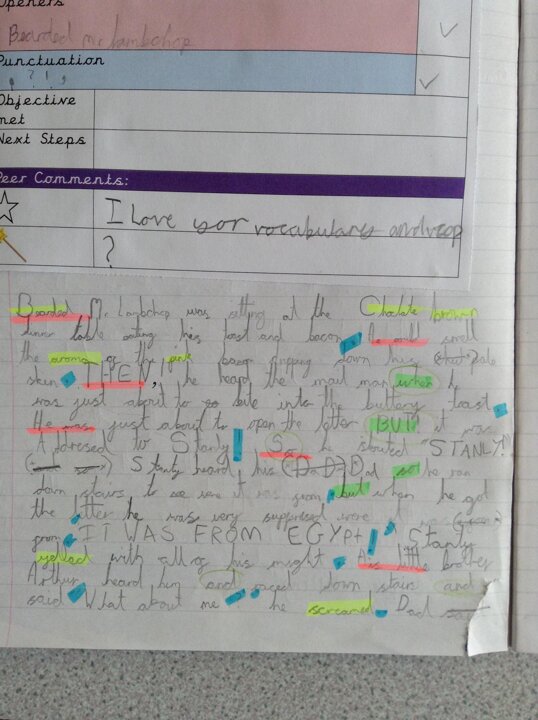 Openers
Bearded mr lambchop
Punctuation
, ? ! ,
Objective
met
Next Steps
Peer Comments:
I Love yor vocabulary and
?
Bearded Mr Lambchop was sitting at the Chocolate brown
dinner table eating his tost and bacon. could smell
the aroma of the pink bacon dripping down his pale
skin. THEN, he heard the mail man when he
was just about to bite into the buttery toast.
He was just about to open the letter BUT it was
Addresed to Stanly! So he shouted "STANLY!"
Stanly heard his Dad so he ran
down stairs to see were it was from, but when he got
the letter he was very suppresed were it was
from. IT WAS FROM "EGYpt!" Stanly
yelled with all of his might. His little brother
Arthur heard him and raced down stair and
said "What about me" he screamed. Dad